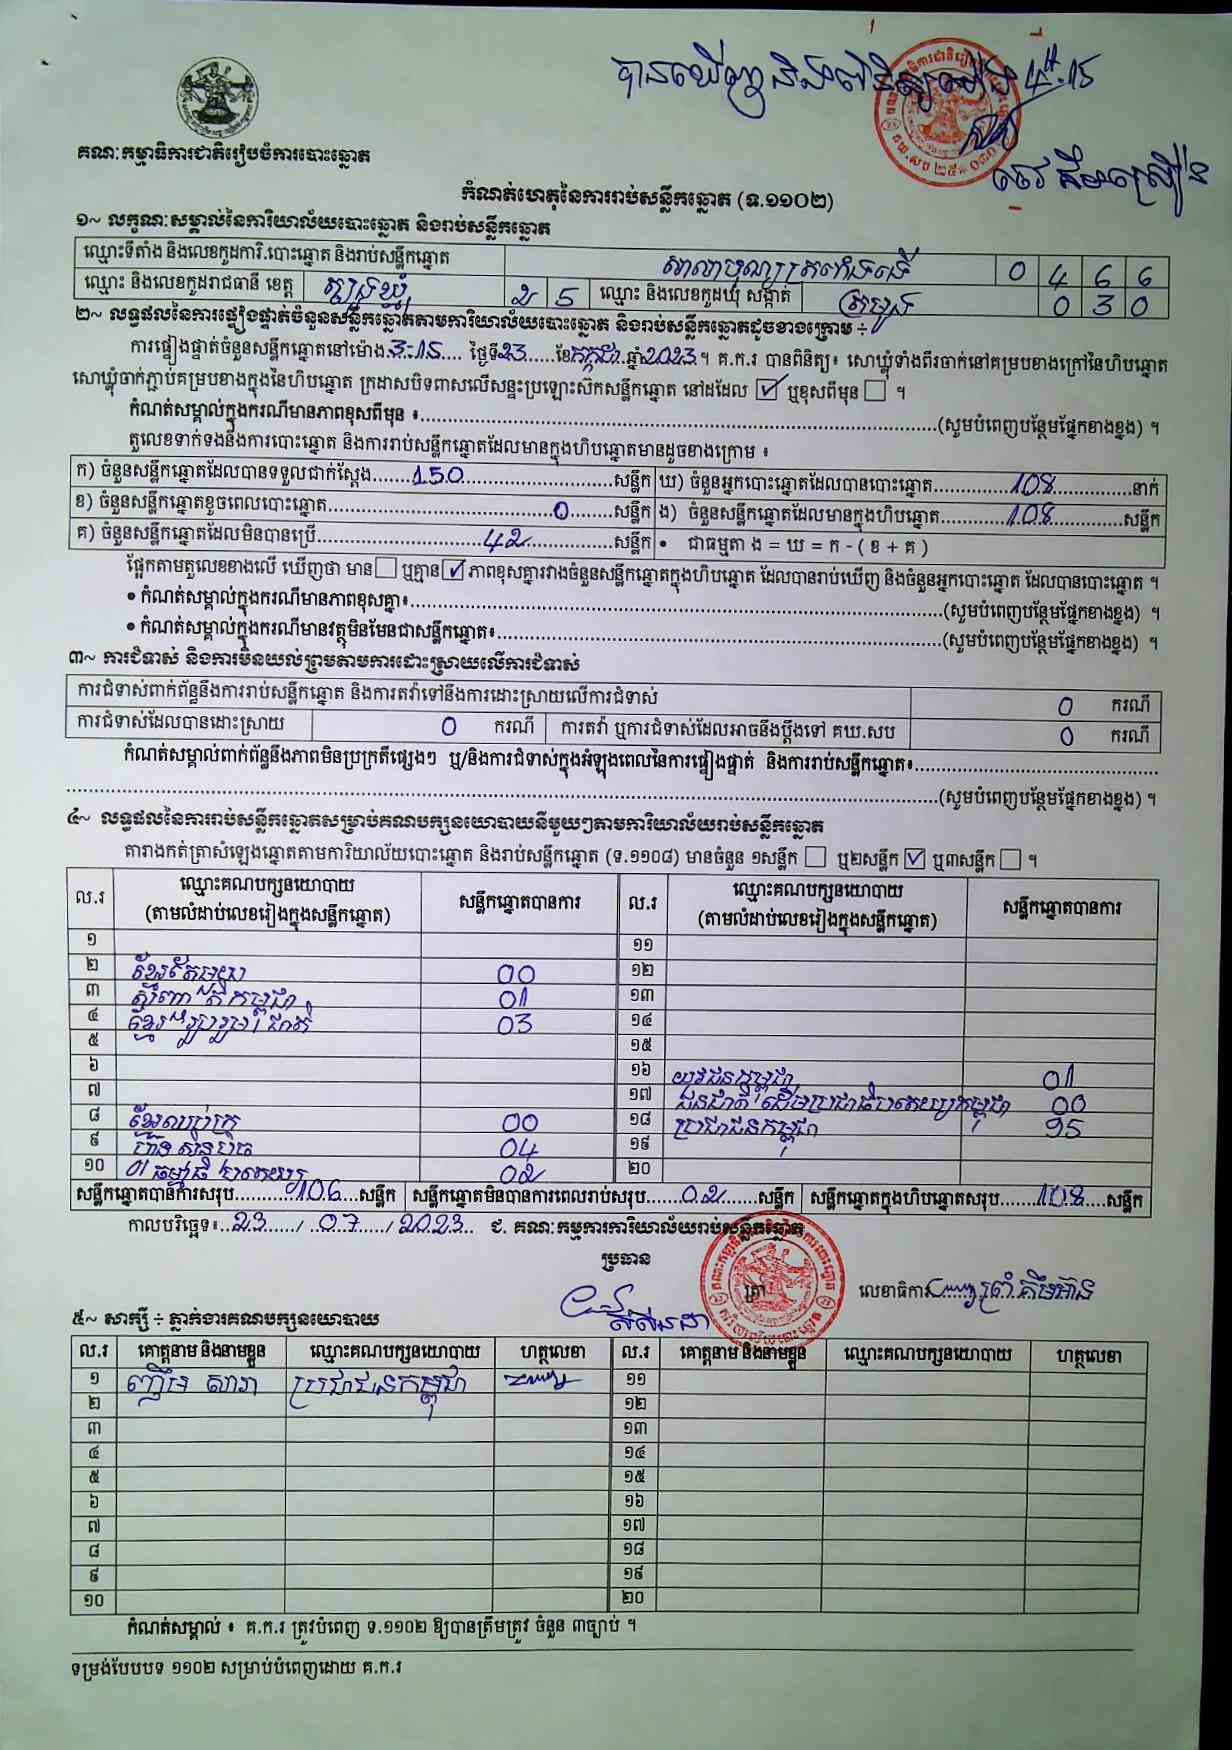 បានឃើញ និងពិនិត្យ ម៉ោង 4:15
គណៈកម្មាធិការជាតិរៀបចំការបោះឆ្នោត
កំណត់ហេតុនៃការរាប់សន្លឹកឆ្នោត (ទ.១១០២)
១~ លក្ខណៈសម្គាល់នៃការិយាល័យបោះឆ្នោត និងរាប់សន្លឹកឆ្នោត
ឈ្មោះទីតាំង និងលេខកូដការិ.បោះឆ្នោត និងរាប់សន្លឹកឆ្នោត 0 4 6 6
ឈ្មោះ និងលេខកូដរាជធានី ខេត្ត ត្បូងឃ្មុំ 2 5 ឈ្មោះ និងលេខកូដឃុំ សង្កាត់ ត្រមូង 0 3 0
២~ លទ្ធផលនៃការផ្ទៀងផ្ទាត់ចំនួនសន្លឹកឆ្នោតតាមការិយាល័យបោះឆ្នោត និងរាប់សន្លឹកឆ្នោតដូចខាងក្រោម ÷
ការផ្ទៀងផ្ទាត់ចំនួនសន្លឹកឆ្នោតនៅម៉ោង 3:15 ថ្ងៃទី 23 ខែ កក្កដា ឆ្នាំ 2023 ។ គ.ក.រ បានពិនិត្យ៖ សោឃ្លុំទាំងពីរចាក់នៅគម្របខាងក្រៅនៃហិបឆ្នោត
សោឃ្លុំចាក់ភ្ជាប់គម្របខាងក្នុងនៃហិបឆ្នោត ក្រដាសបិទពាសលើសន្ទះប្រឡោះស៊កសន្លឹកឆ្នោត នៅដដែល ☑ ឬខុសពីមុន ☐ ។
កំណត់សម្គាល់ក្នុងករណីមានភាពខុសពីមុន ៖ (សូមបំពេញបន្ថែមផ្នែកខាងខ្នង) ។
តួលេខទាក់ទងនឹងការបោះឆ្នោត និងការរាប់សន្លឹកឆ្នោតដែលមានក្នុងហិបឆ្នោតមានដូចខាងក្រោម ៖
ក) ចំនួនសន្លឹកឆ្នោតដែលបានទទួលជាក់ស្តែង 150 សន្លឹក ឃ) ចំនួនអ្នកបោះឆ្នោតដែលបានបោះឆ្នោត 108 នាក់
ខ) ចំនួនសន្លឹកឆ្នោតខូចពេលបោះឆ្នោត 0 សន្លឹក ង) ចំនួនសន្លឹកឆ្នោតដែលមានក្នុងហិបឆ្នោត 108 សន្លឹក
គ) ចំនួនសន្លឹកឆ្នោតដែលមិនបានប្រើ 42 សន្លឹក • ជាធម្មតា ង = ឃ = ក - ( ខ + គ )
ផ្អែកតាមតួលេខខាងលើ ឃើញថា មាន ☐ ឬគ្មាន ☑ ភាពខុសគ្នារវាងចំនួនសន្លឹកឆ្នោតក្នុងហិបឆ្នោត ដែលបានរាប់ឃើញ និងចំនួនអ្នកបោះឆ្នោត ដែលបានបោះឆ្នោត ។
• កំណត់សម្គាល់ក្នុងករណីមានភាពខុសគ្នា៖ (សូមបំពេញបន្ថែមផ្នែកខាងខ្នង) ។
• កំណត់សម្គាល់ក្នុងករណីមានវត្ថុមិនមែនជាសន្លឹកឆ្នោត៖ (សូមបំពេញបន្ថែមផ្នែកខាងខ្នង) ។
៣~ ការជំទាស់ និងការមិនយល់ព្រមតាមការដោះស្រាយលើការជំទាស់
ការជំទាស់ពាក់ព័ន្ធនឹងការរាប់សន្លឹកឆ្នោត និងការតវ៉ាទៅនឹងការដោះស្រាយលើការជំទាស់ 0 ករណី
ការជំទាស់ដែលបានដោះស្រាយ 0 ករណី ការតវ៉ា ឬការជំទាស់ដែលអាចនឹងប្តឹងទៅ គឃ.សប 0 ករណី
កំណត់សម្គាល់ពាក់ព័ន្ធនឹងភាពមិនប្រក្រតីផ្សេងៗ ឬ/និងការជំទាស់ក្នុងអំឡុងពេលនៃការផ្ទៀងផ្ទាត់ និងការរាប់សន្លឹកឆ្នោត៖
(សូមបំពេញបន្ថែមផ្នែកខាងខ្នង) ។
៤~ លទ្ធផលនៃការរាប់សន្លឹកឆ្នោតសម្រាប់គណបក្សនយោបាយនីមួយៗតាមការិយាល័យរាប់សន្លឹកឆ្នោត
តារាងកត់ត្រាសំឡេងឆ្នោតតាមការិយាល័យបោះឆ្នោត និងរាប់សន្លឹកឆ្នោត (ទ.១១០៨) មានចំនួន ១សន្លឹក ☐ ឬ២សន្លឹក ☑ ឬ៣សន្លឹក ☐ ។
ល.រ ឈ្មោះគណបក្សនយោបាយ (តាមលំដាប់លេខរៀងក្នុងសន្លឹកឆ្នោត) សន្លឹកឆ្នោតបានការ ល.រ ឈ្មោះគណបក្សនយោបាយ (តាមលំដាប់លេខរៀងក្នុងសន្លឹកឆ្នោត) សន្លឹកឆ្នោតបានការ
១ ១១
២ ខ្មែរតែមួយ 00 ១២
៣ 01 ១៣
៤ ខ្មែររួបរួមជាតិ 03 ១៤
៥ ១៥
៦ ១៦ យុវជនកម្ពុជា 01
៧ ១៧ ជនជាតិដើមប្រជាធិបតេយ្យកម្ពុជា 00
៨ ខ្មែរឈប់ក្រ 00 ១៨ ប្រជាជនកម្ពុជា 95
៩ ហ្វ៊ុនស៊ិនប៉ិច 04 ១៩
១០ 02 ២០
សន្លឹកឆ្នោតបានការសរុប 106 សន្លឹក សន្លឹកឆ្នោតមិនបានការពេលរាប់សរុប 02 សន្លឹក សន្លឹកឆ្នោតក្នុងហិបឆ្នោតសរុប 108 សន្លឹក
កាលបរិច្ឆេទ៖ 23 / 07 / 2023 ជ. គណៈកម្មការការិយាល័យរាប់សន្លឹកឆ្នោត
ប្រធាន
ត្រា លេខាធិការ
៥~ សាក្សី ÷ ភ្នាក់ងារគណបក្សនយោបាយ
ល.រ គោត្តនាម និងនាមខ្លួន ឈ្មោះគណបក្សនយោបាយ ហត្ថលេខា ល.រ គោត្តនាម និងនាមខ្លួន ឈ្មោះគណបក្សនយោបាយ ហត្ថលេខា
១ ញឹម សារា ប្រជាជនកម្ពុជា ១១
២ ១២
៣ ១៣
៤ ១៤
៥ ១៥
៦ ១៦
៧ ១៧
៨ ១៨
៩ ១៩
១០ ២០
កំណត់សម្គាល់ ៖ គ.ក.រ ត្រូវបំពេញ ទ.១១០២ ឱ្យបានត្រឹមត្រូវ ចំនួន ៣ច្បាប់ ។
ទម្រង់បែបបទ ១១០២ សម្រាប់បំពេញដោយ គ.ក.រ